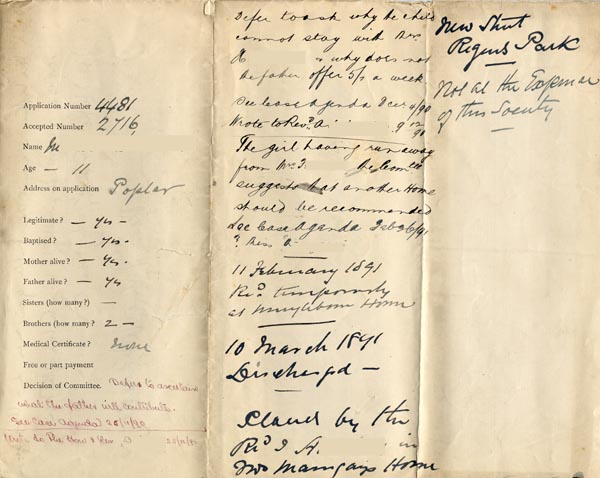 Application Number 4481
Accepted Number 2716
Name M
Age — 11
Address on application Poplar
Legitimate? — Yes —
Baptised? — Yes.
Mother alive? — Yes
Father alive? — Yes
Sisters (how many?) —
Brothers (how many? 2 —
Medical Certificate? None
Free or part payment
Decision of Committee. Defer to ascertain
what the father will contribute.
See Case Agenda 25/11/90
Write to The Hon & Rev. A
Defer to ask why the child
cannot stay with Mrs
H & why does not
the father offer 5/s a week
See Case Agenda Decr 9/90
Wrote to Revd A. 9 12 90
The girl having run away
from Mrs J. the Comtee
suggests that another Home
should be recommended
See Case Agenda Feb
? Miss A.
11 February 1891
Recd temporarily
at Marylebone Home
10 March 1891
Discharged —
Placed by the
Revd J. A. in
Mrs Home
New Street
Regents Park
Not at the Expense
of this Society